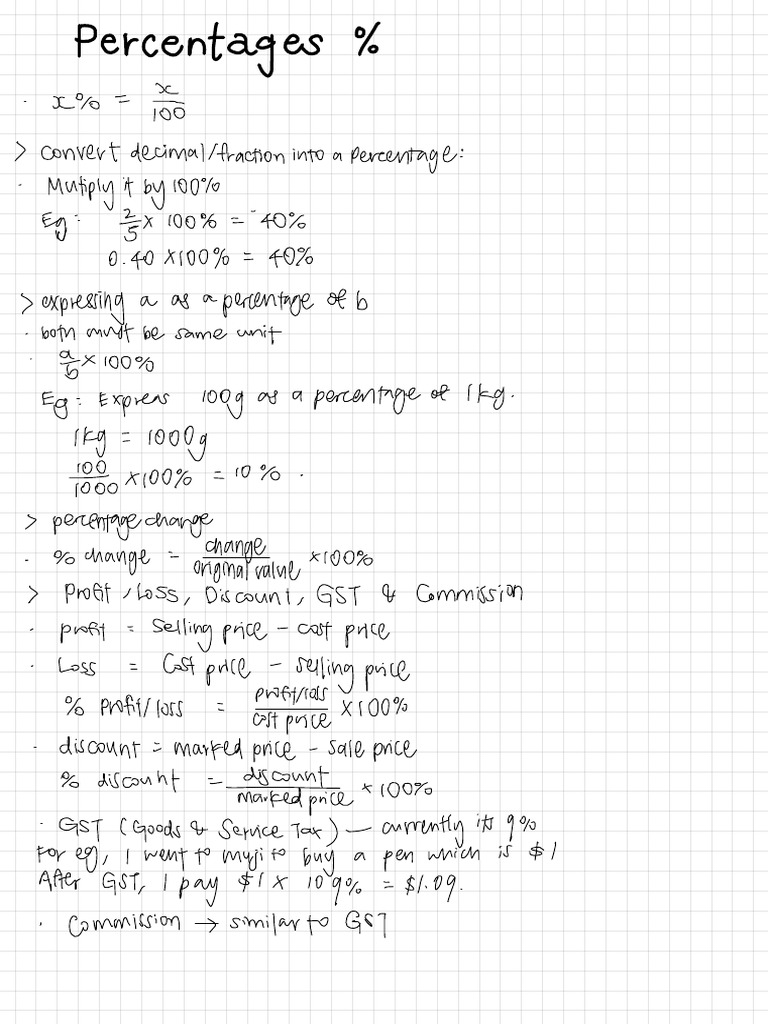 Percentages %
· x% = x/100
> convert decimal/fraction into a percentage:
· Mutiply it by 100%
Eg: 2/5 × 100% = 40%
0.40 × 100% = 40%
> expressing a as a percentage of b
· both must be same unit
· a/b × 100%
Eg: Express 100g as a percentage of 1kg.
1kg = 1000g
100/1000 × 100% = 10%.
> percentage change
· % change = change/original value × 100%
> Profit/Loss, Discount, GST & Commission
· profit = Selling price - cost price
· Loss = Cost price - selling price
% Profit/loss = profit/loss/cost price × 100%
· discount = marked price - sale price
% discount = discount/marked price × 100%
· GST (Goods & Service Tax) — currently its 9%
For eg, I went to muji to buy a pen which is $1
After GST, I pay $1 × 109% = $1.09.
· Commission → similar to GST